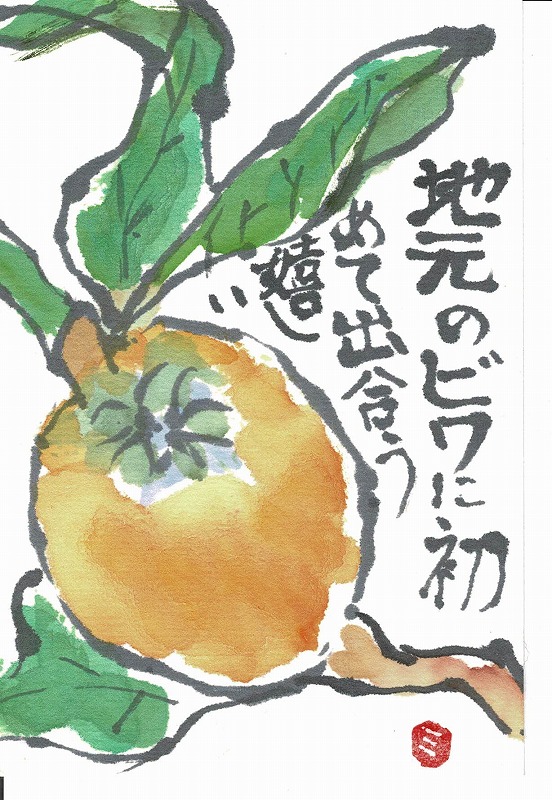 地元のビワに初
めて出合う
嬉し
い
ミ